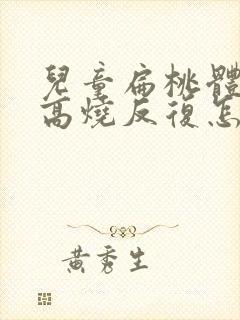 兒童扁桃體
高燒反復怎
黃秀生